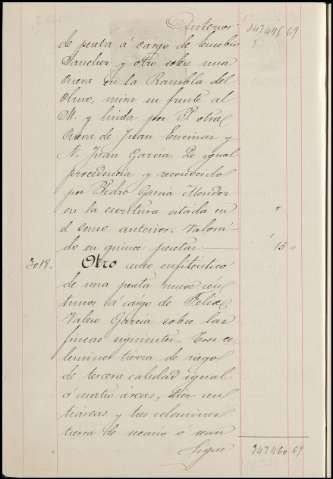 Anterior 347445 69
de peseta á cargo de Eusebio
Sanchez y otro sobre una
Cueva en la Rambla del
Olmo, mira su frente al
M. y linda por P. otra
Cueva de Juan Encinar y
N. Juan Garcia. De igual
procedencia y reconocido
por Pedro Garcia Mendez
en la escritura citada en
el censo anterior. Valora-
do en quince pesetas 15 "
3018. Otro censo enfitéutico
de una peseta nueve cén-
timos á cargo de Felix
Valero Garcia sobre las
fincas siguientes. Tres ce-
lemines tierra de riego
de tercera calidad igual
á cuatro áreas, diez cen-
tiáreas y los celemines
tierra de secano ó sean
Sigue 347460 69